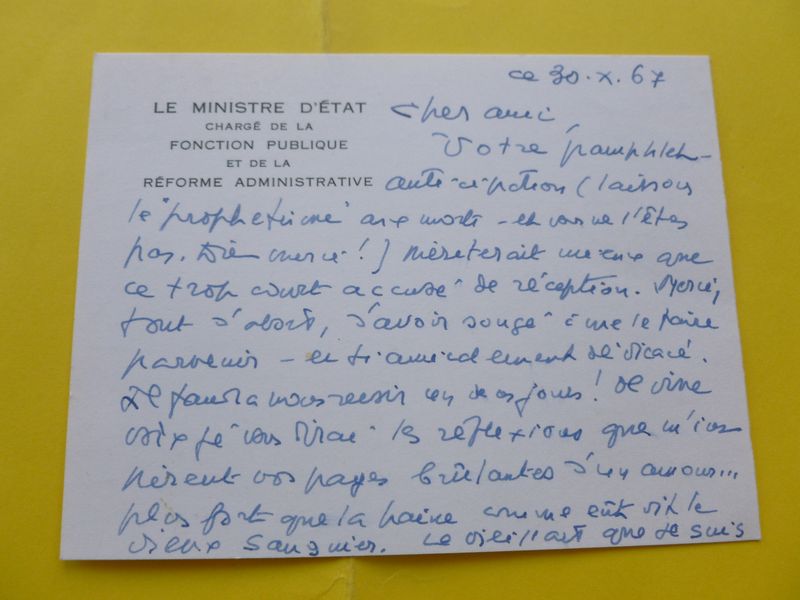 ce 30.X.67
LE MINISTRE D'ÉTAT
CHARGÉ DE LA
FONCTION PUBLIQUE
ET DE LA
RÉFORME ADMINISTRATIVE
Cher ami,
Votre pamphlet-
anticipation (laissons
le "prophétisme" aux morts - et vous ne l'êtes
pas. Dieu merci !) mériterait mieux que
ce trop court accusé de réception. Merci,
tout d'abord, d'avoir songé à me le faire
parvenir - et si amicalement dédicacé.
Il faudra nous revoir un de ces jours ! De vive
voix je vous dirai les réflexions que m'ins
pirent vos pages brûlantes d'un amour...
plus fort que la haine comme eût dit le
vieux Sangnier. Le vieillard que je suis